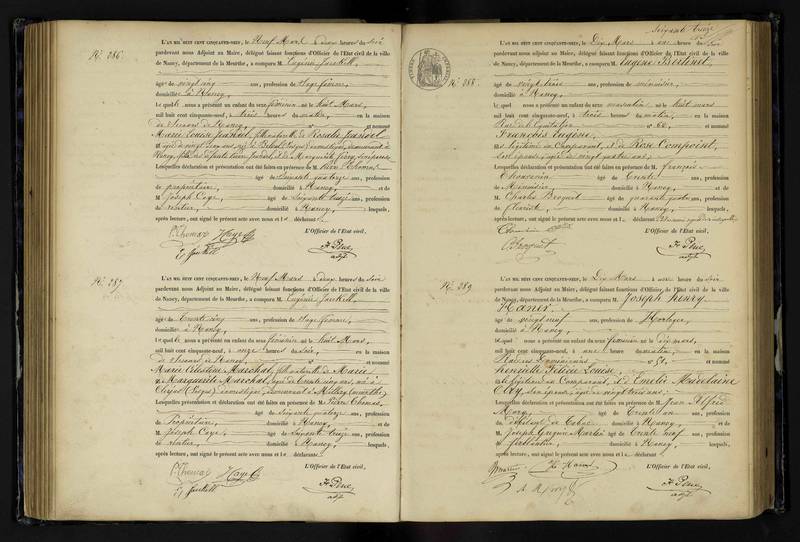 Nº 286.
L'AN MIL HUIT CENT CINQUANTE-NEUF, le Neuf Mars à deux heures du soir
pardevant nous Adjoint au Maire, délégué faisant fonctions d'Officier de l'Etat civil de la ville
de Nancy, département de la Meurthe, a comparu M. Eugénie
âgé de vingt cinq ans, profession de Sage femme,
domicilié à Nancy,
Lequel nous a présenté un enfant du sexe féminin né le huit Mars,
mil huit cent cinquante-neuf, à trois heures du matin, en la maison
de Secours de Nancy, n° et nommé
Marie Louise Jeandel, de Rosalie Jeandel
âgée de vingt cinq ans, domestique, demeurant à
Lesquelles déclaration et présentation ont été faites en présence de M. Pierre Thomas,
âgé de Soixante quatorze ans, profession
de propriétaire, domicilié à Nancy, et de
M. Joseph Caye, âgé de Soixante treize ans, profession
de rentier, domicilié à Nancy, lesquels,
après lecture, ont signé le présent acte avec nous et le déclarant
P. Thomas J Caye
L'Officier de l'Etat civil,
adjt
Nº 287.
L'AN MIL HUIT CENT CINQUANTE-NEUF, le Neuf Mars à deux heures du soir
pardevant nous Adjoint au Maire, délégué faisant fonctions d'Officier de l'Etat civil de la ville
de Nancy, département de la Meurthe, a comparu M. Eugénie
âgé de trente cinq ans, profession de Sage femme,
domicilié à Nancy,
Lequel nous a présenté un enfant du sexe féminin né le huit Mars,
mil huit cent cinquante-neuf, à onze heures du soir, en la maison
de Secours de Nancy, n° et nommé
Marie Célestine Marchal, de Marie
Marguerite Marchal, âgée de trente cinq ans, née à
(Vosges) domestique, demeurant à (meurthe)
Lesquelles présentation et déclaration ont été faites en présence de M. Pierre Thomas,
âgé de Soixante quatorze ans, profession
de Propriétaire, domicilié à Nancy, et de
M. Joseph Caye, âgé de Soixante treize ans, profession
de rentier, domicilié à Nancy, lesquels,
après lecture, ont signé le présent acte avec nous et le déclarant
P. Thomas J Caye
L'Officier de l'Etat civil,
adjt
Soixante treize
Nº 288.
L'AN MIL HUIT CENT CINQUANTE-NEUF, le Dix Mars à une heure du soir
pardevant nous Adjoint au Maire, délégué faisant fonctions d'Officier de l'Etat civil de la ville
de Nancy, département de la Meurthe, a comparu M. Eugène Bertinet,
âgé de vingt trois ans, profession de menuisier,
domicilié à Nancy,
Lequel nous a présenté un enfant du sexe masculin né le huit mars
mil huit cent cinquante-neuf, à trois heures du matin, en la maison
Rue de l'Equitation n° 60, et nommé
François Eugène,
fils légitime du Comparant, et de Rose Compoint,
son épouse, âgée de vingt quatre ans,
Lesquelles déclaration et présentation ont été faites en présence de M. François
Chauvenin âgé de trente ans, profession
de Menuisier domicilié à Nancy, et de
M. Charles Broquet âgé de quarante quatre ans, profession
de domicilié à Nancy, lesquels,
après lecture, ont signé le présent acte avec nous et le déclarant
Broquet
L'Officier de l'Etat civil,
adjt
Nº 289
L'AN MIL HUIT CENT CINQUANTE-NEUF, le Dix Mars à une heure du soir
pardevant nous Adjoint au Maire, délégué faisant fonctions d'Officier de l'Etat civil de la ville
de Nancy, département de la Meurthe, a comparu M. Joseph Henry
âgé de vingt neuf ans, profession de Horloger,
domicilié à Nancy,
Lequel nous a présenté un enfant du sexe féminin né le dix mars,
mil huit cent cinquante-neuf, à une heure du matin, en la maison
Rue des Dominicains n° 51, et nommé
Henriette Félicie Louise,
fille légitime du Comparant, et d'Emélie Madelaine
son épouse, âgée de vingt trois ans,
Lesquelles déclaration et présentation ont été faites en présence de M. Jean Alfred
âgé de trente un ans, profession
de débitant de tabac domicilié à Nancy, et de
M. Joseph âgé de trente neuf ans, profession
de ferblantier, domicilié à Nancy, lesquels,
après lecture, ont signé le présent acte avec nous et le déclarant
L'Officier de l'Etat civil,
adjt